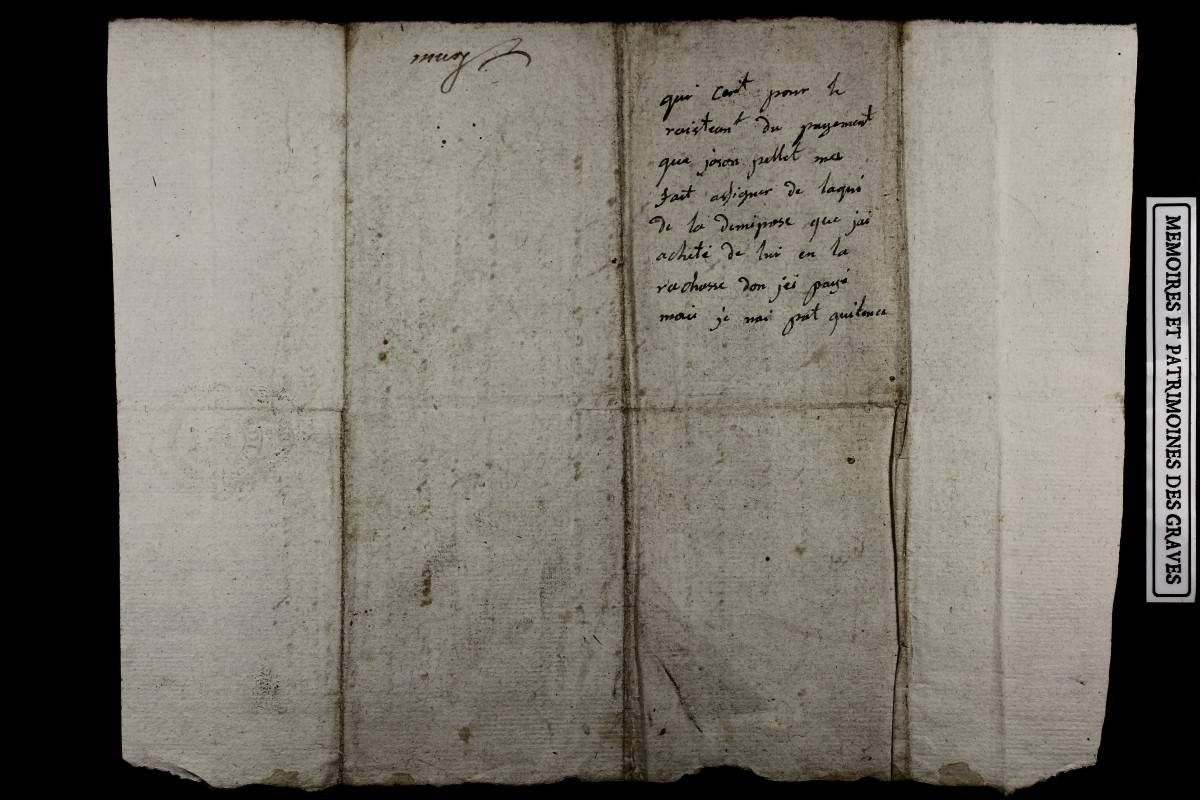 qui cert pour le
raisteant du payement
que joson pellet mea
fait assigner de laqui
de la demipose que jai
acheté de lui en la
rachasse don jei payé
mais je nai pat quitence
MEMOIRES ET PATRIMOINES DES GRAVES